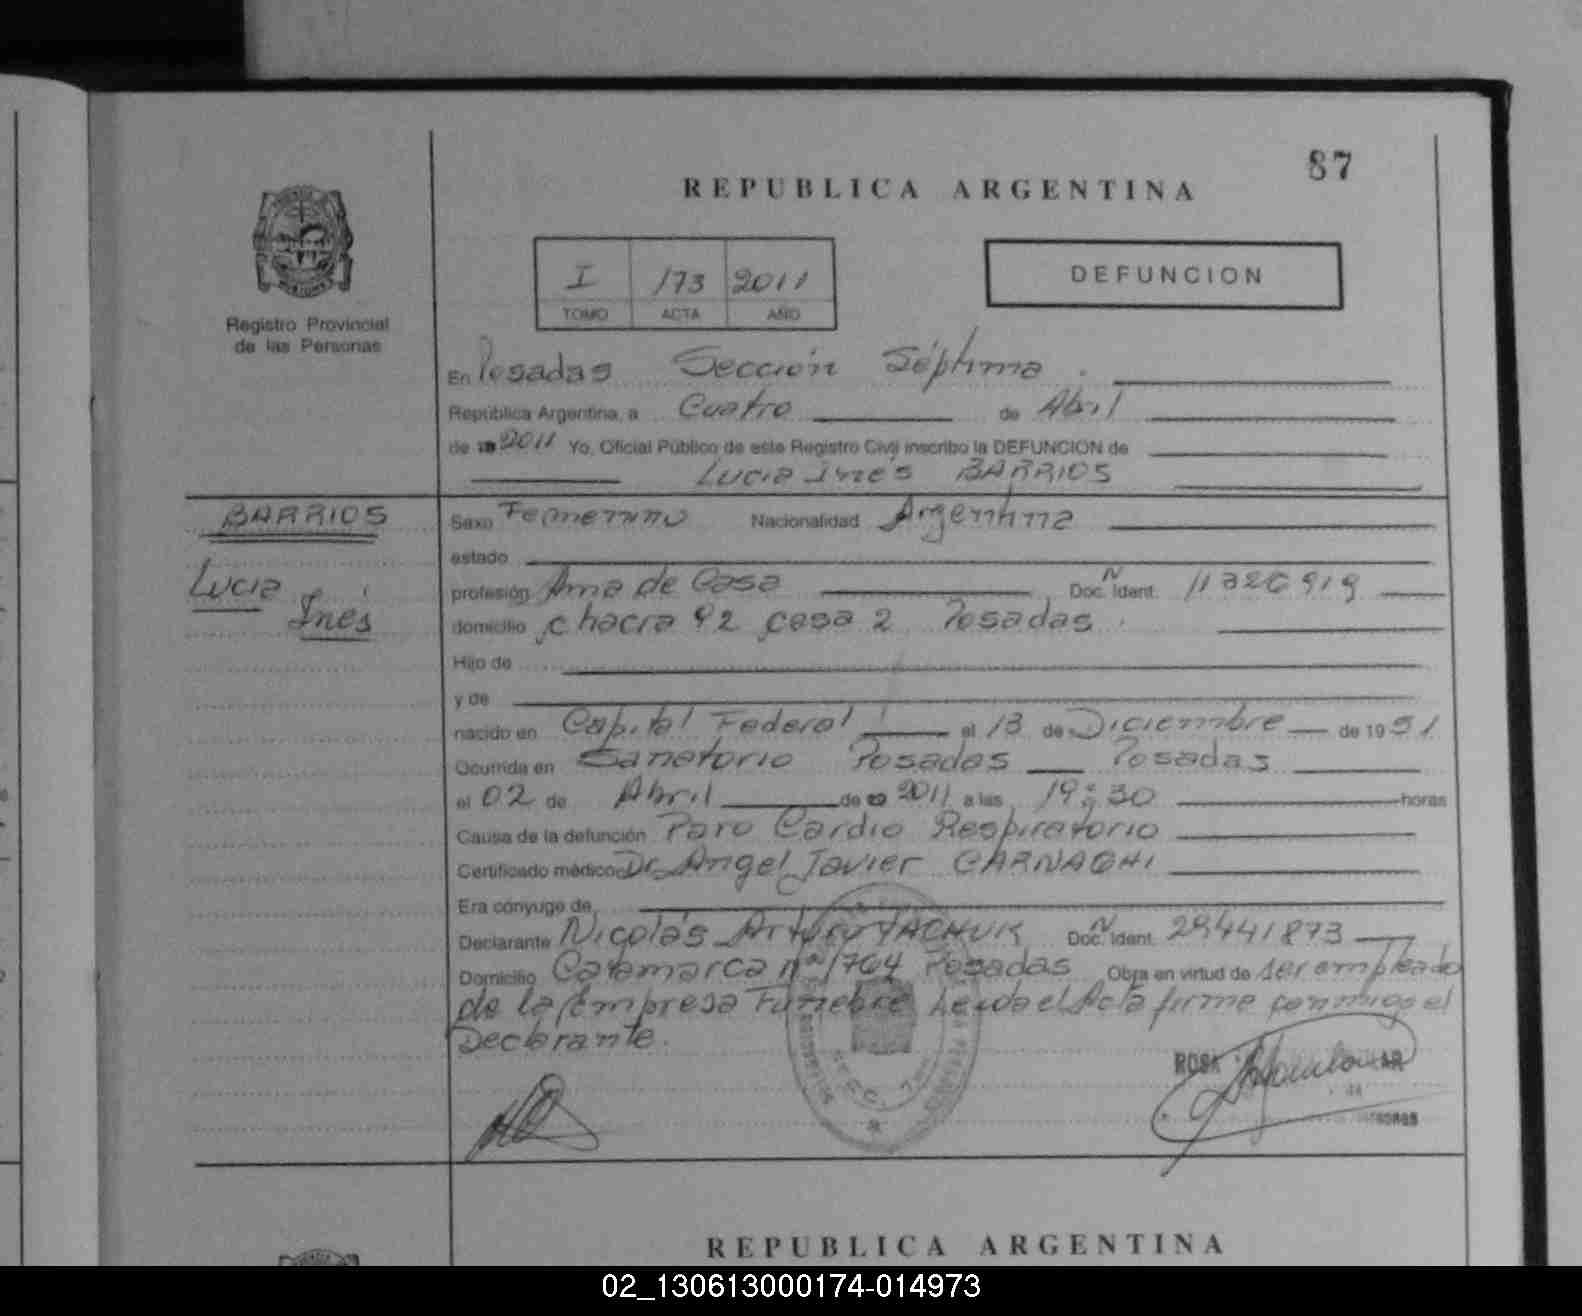 87
REPUBLICA ARGENTINA
I 173 2011
TOMO ACTA AÑO
DEFUNCION
Registro Provincial
de las Personas
En Posadas Sección Séptima
República Argentina, a Cuatro de Abril
de 2011 Yo, Oficial Público de este Registro Civil inscribo la DEFUNCION de
Lucia Inés BARRIOS
BARRIOS
Lucia
Inés
Sexo Femenino Nacionalidad Argentina
estado
profesión Ama de Casa Doc. N Ident. 11326919
domicilio chacra 92 casa 2 Posadas
Hijo de
y de
nacido en Capital Federal el 13 de Diciembre de 1951
Ocurrida en Sanatorio Posadas Posadas
el 02 de Abril de 2011 a las 19:30 horas
Causa de la defunción Paro Cardio Respiratorio
Certificado médico Dr. Angel Javier CARNAGHI
Era cónyuge de
Declarante Nicolás Arturo TACHUK Doc. N Ident. 29441873
Domicilio Catamarca nº 1764 Posadas Obra en virtud de ser empleado
de la Empresa Funebre Leida el Acta firme conmigo el
Declarante.
ROSA
REPUBLICA ARGENTINA
02_130613000174-014973